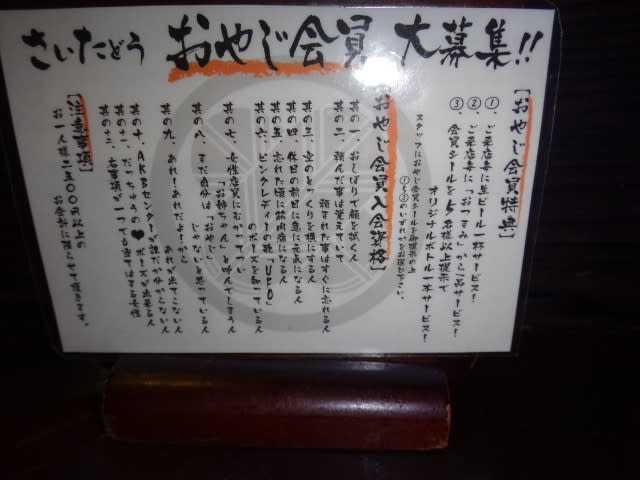 さいたどう おやじ会員 大募集!!
[おやじ会員特典]
① ご来店毎に生ビール一杯サービス!
② ご来店毎に「おつまみ」から1品サービス!
③ 会員シールを5名様以上提示で
オリジナルボトル一本サービス!
スタッフにおやじ会員シールを御提示の上
①〜③のいずれかをお選び下さい。
[おやじ会員入会資格]
其の一 おしぼりで顔を拭く人
其の二 頼んだ事は覚えていて
頼まれた事はすぐに忘れる人
其の三 空のとっくりを横にする人
其の四 休日の前日に急に元気になる人
其の五 忘れた頃に筋肉痛になる人
其の六 ピンクレディーの歌「UFO」
のポーズを知っている人
其の七 女性店員にむかってつい
「お姉ちゃん」と呼んでしまう人
其の八 まだ自分は「おやじ」
じゃないと思っている人
其の九 あれ!あれだよ…から
あれが出てこない人
其の十 AKBセンターが誰だか分からない人
其の十一 だっちゅうの♥ポーズが出来る人
其の十二 右事項が一つでも当てはまる女性
お一人様二五〇〇円以上の
お会計に限らせて頂きます。